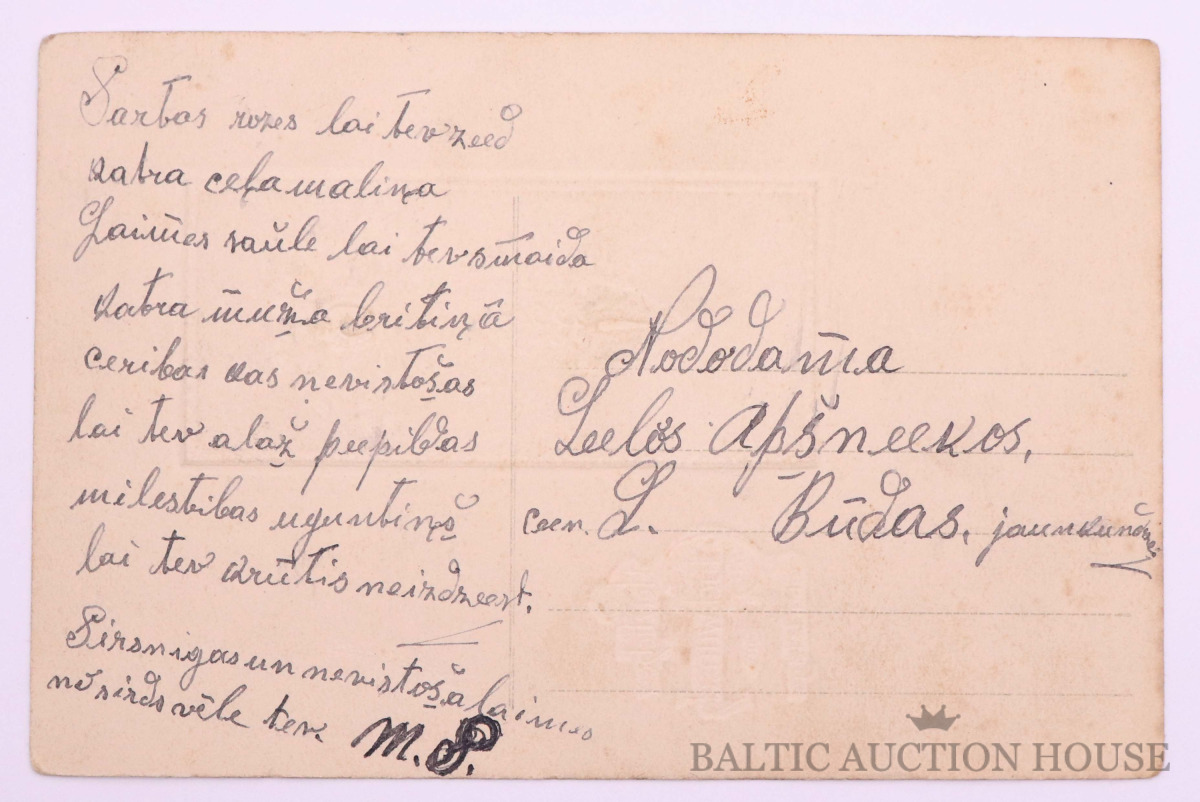 Sartas rozes lai tev zeed
katra ceļa maliņa
Laimes saule lai tev smaida
katra muža britiņā
ceribas kas nevistošas
lai tev alaž peepildas
milestibas uguntiņš
lai tev krūtis neizdzeest.
Sirsnigas un nevistoša laimes
nŏ sirds vēle tev.
M.S.
Nododama
Leelŏs Apšneekos.
ceen. L. Būdas. jaunkundzei
BALTIC AUCTION HOUSE